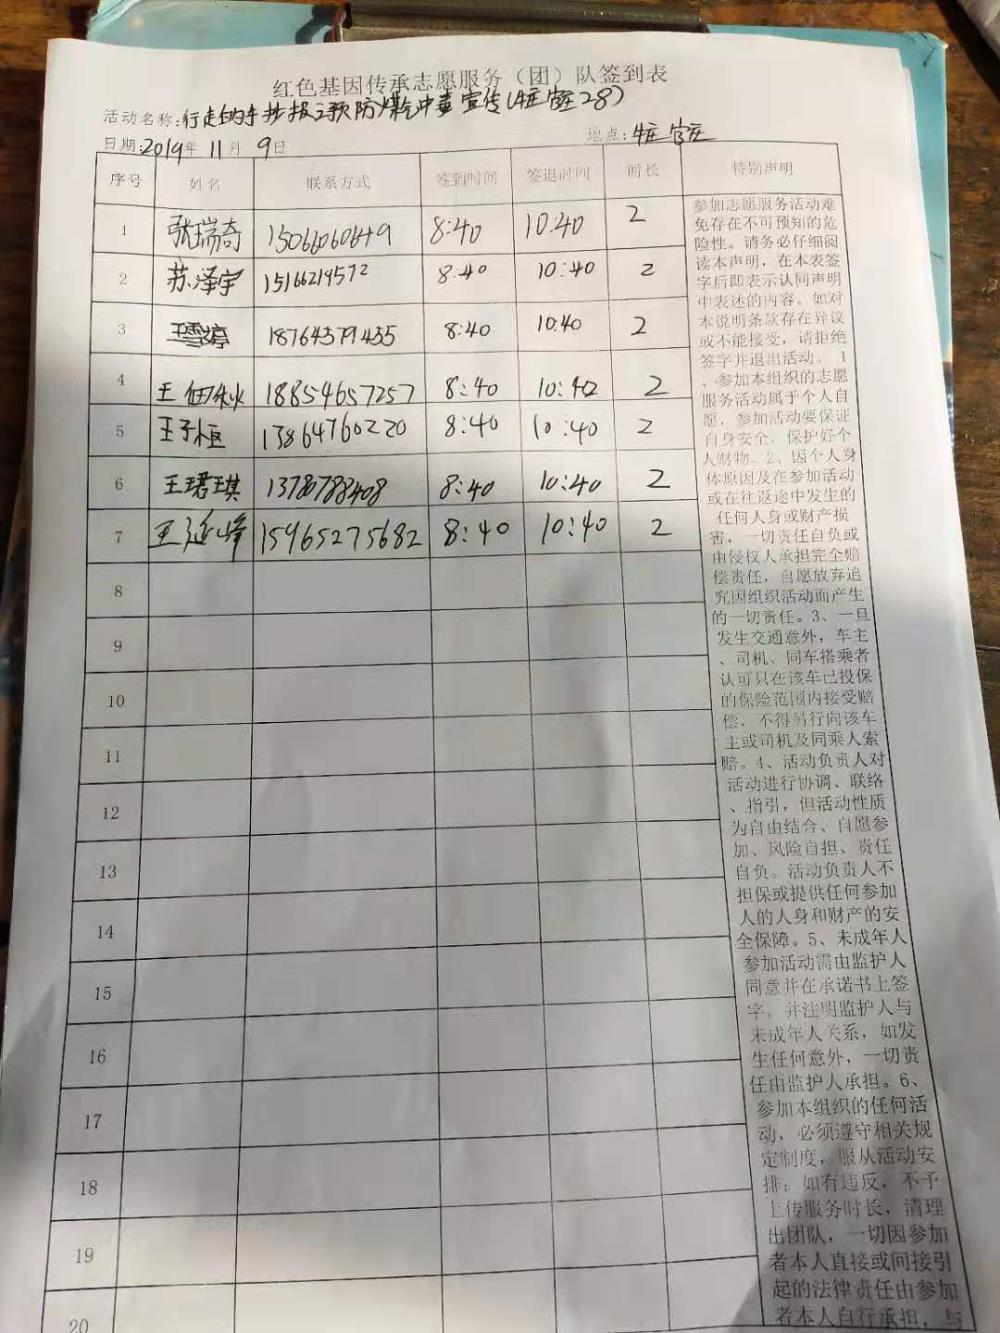 红色基因传承志愿服务(团)队签到表
活动名称:行走的手抄报之预防煤气中毒宣传(牛官庄28)
日期:2019年11月9日 地点:牛官庄
序号 姓名 联系方式 签到时间 签退时间 时长 特别声明
1 张瑞奇 15066060649 8:40 10:40 2
2 苏泽宇 15166219572 8:40 10:40 2
3 王雪婷 18764379455 8:40 10:40 2
4 王佃秋 18854657257 8:40 10:40 2
5 王子恒 13864760220 8:40 10:40 2
6 王珺琪 13780788408 8:40 10:40 2
7 王延峰 15965275682 8:40 10:40 2
8
9
10
11
12
13
14
15
16
17
18
19
20
参加志愿服务活动难
免存在不可预知的危
险性。请务必仔细阅
读本声明，在本表签
字后即表示认同声明
中表述的内容。如对
本说明条款存在异议
或不能接受，请拒绝
签字并退出活动。1
、参加本组织的志愿
服务活动属于个人自
愿，参加活动要保证
自身安全，保护好个
人财物。2、因个人身
体原因及在参加活动
或在往返途中发生的
任何人身或财产损
害，一切责任自负或
由侵权人承担完全赔
偿责任，自愿放弃追
究因组织活动而产生
的一切责任。3、一旦
发生交通意外，车主
、司机、同车搭乘者
认可只在该车已投保
的保险范围内接受赔
偿，不得另行向该车
主或司机及同乘人索
赔。4、活动负责人对
活动进行协调、联络
、指引，但活动性质
为自由结合、自愿参
加、风险自担、责任
自负。活动负责人不
担保或提供任何参加
人的人身和财产的安
全保障。5、未成年人
参加活动需由监护人
同意并在承诺书上签
字，并注明监护人与
未成年人关系，如发
生任何意外，一切责
任由监护人承担。6、
参加本组织的任何活
动，必须遵守相关规
定制度，服从活动安
排；如有违反，不予
上传服务时长，清理
出团队，一切因参加
者本人直接或间接引
起的法律责任由参加
者本人自行承担，与